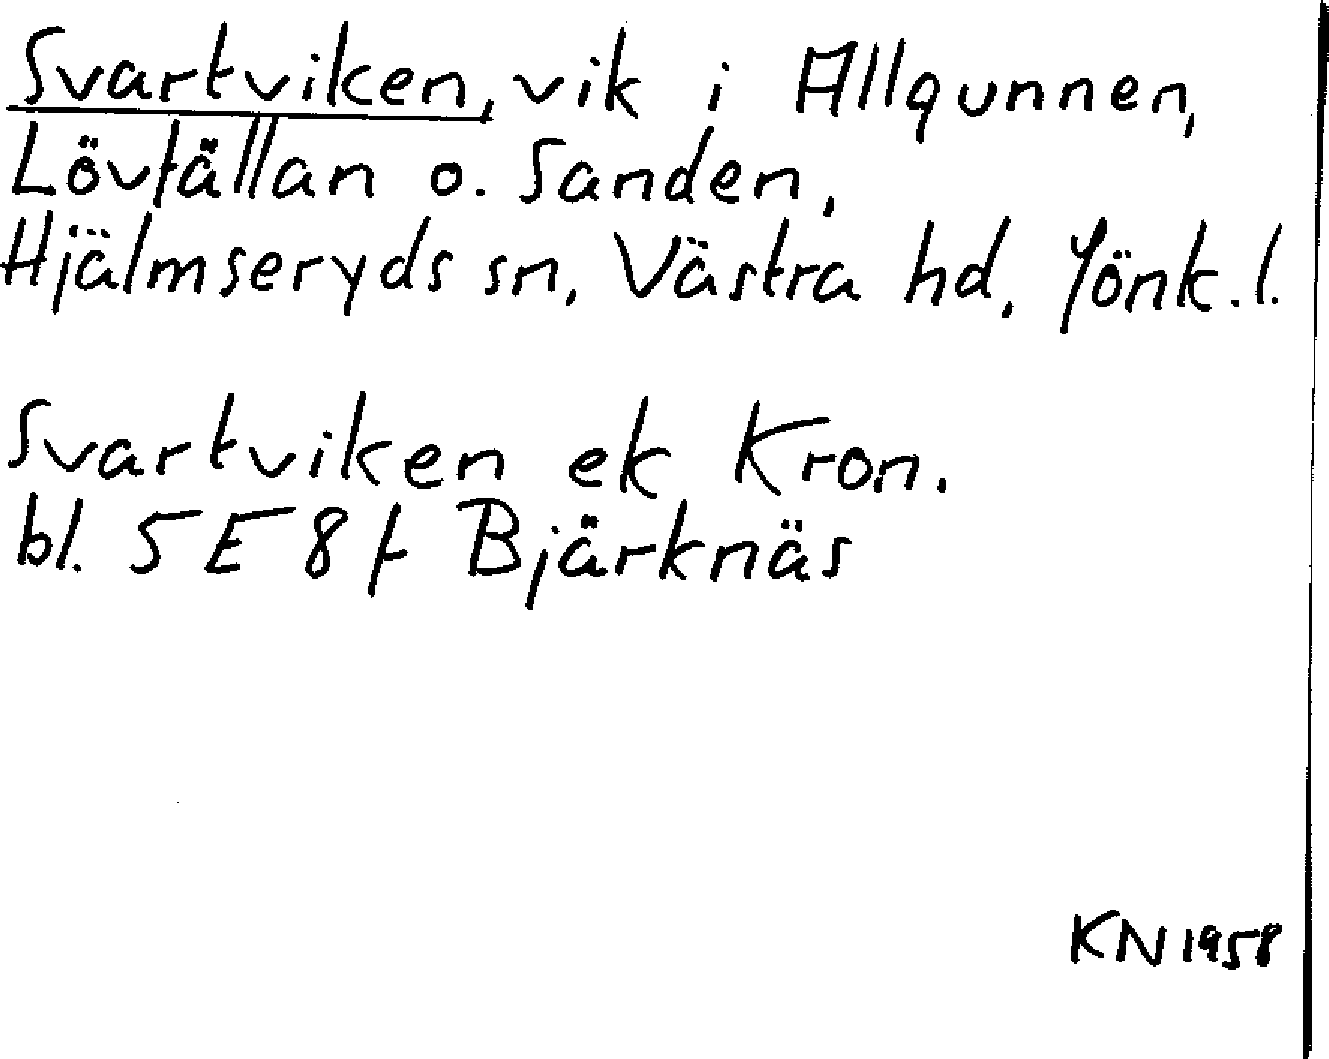 Svartviken, vik i Allgunnen,
Lövfällan o. Sanden,
Hjälmseryds sn, Västra hd, Jönk.l.
Svartviken ek Kron.
bl. 5E8f Bjärknäs
KN 1958